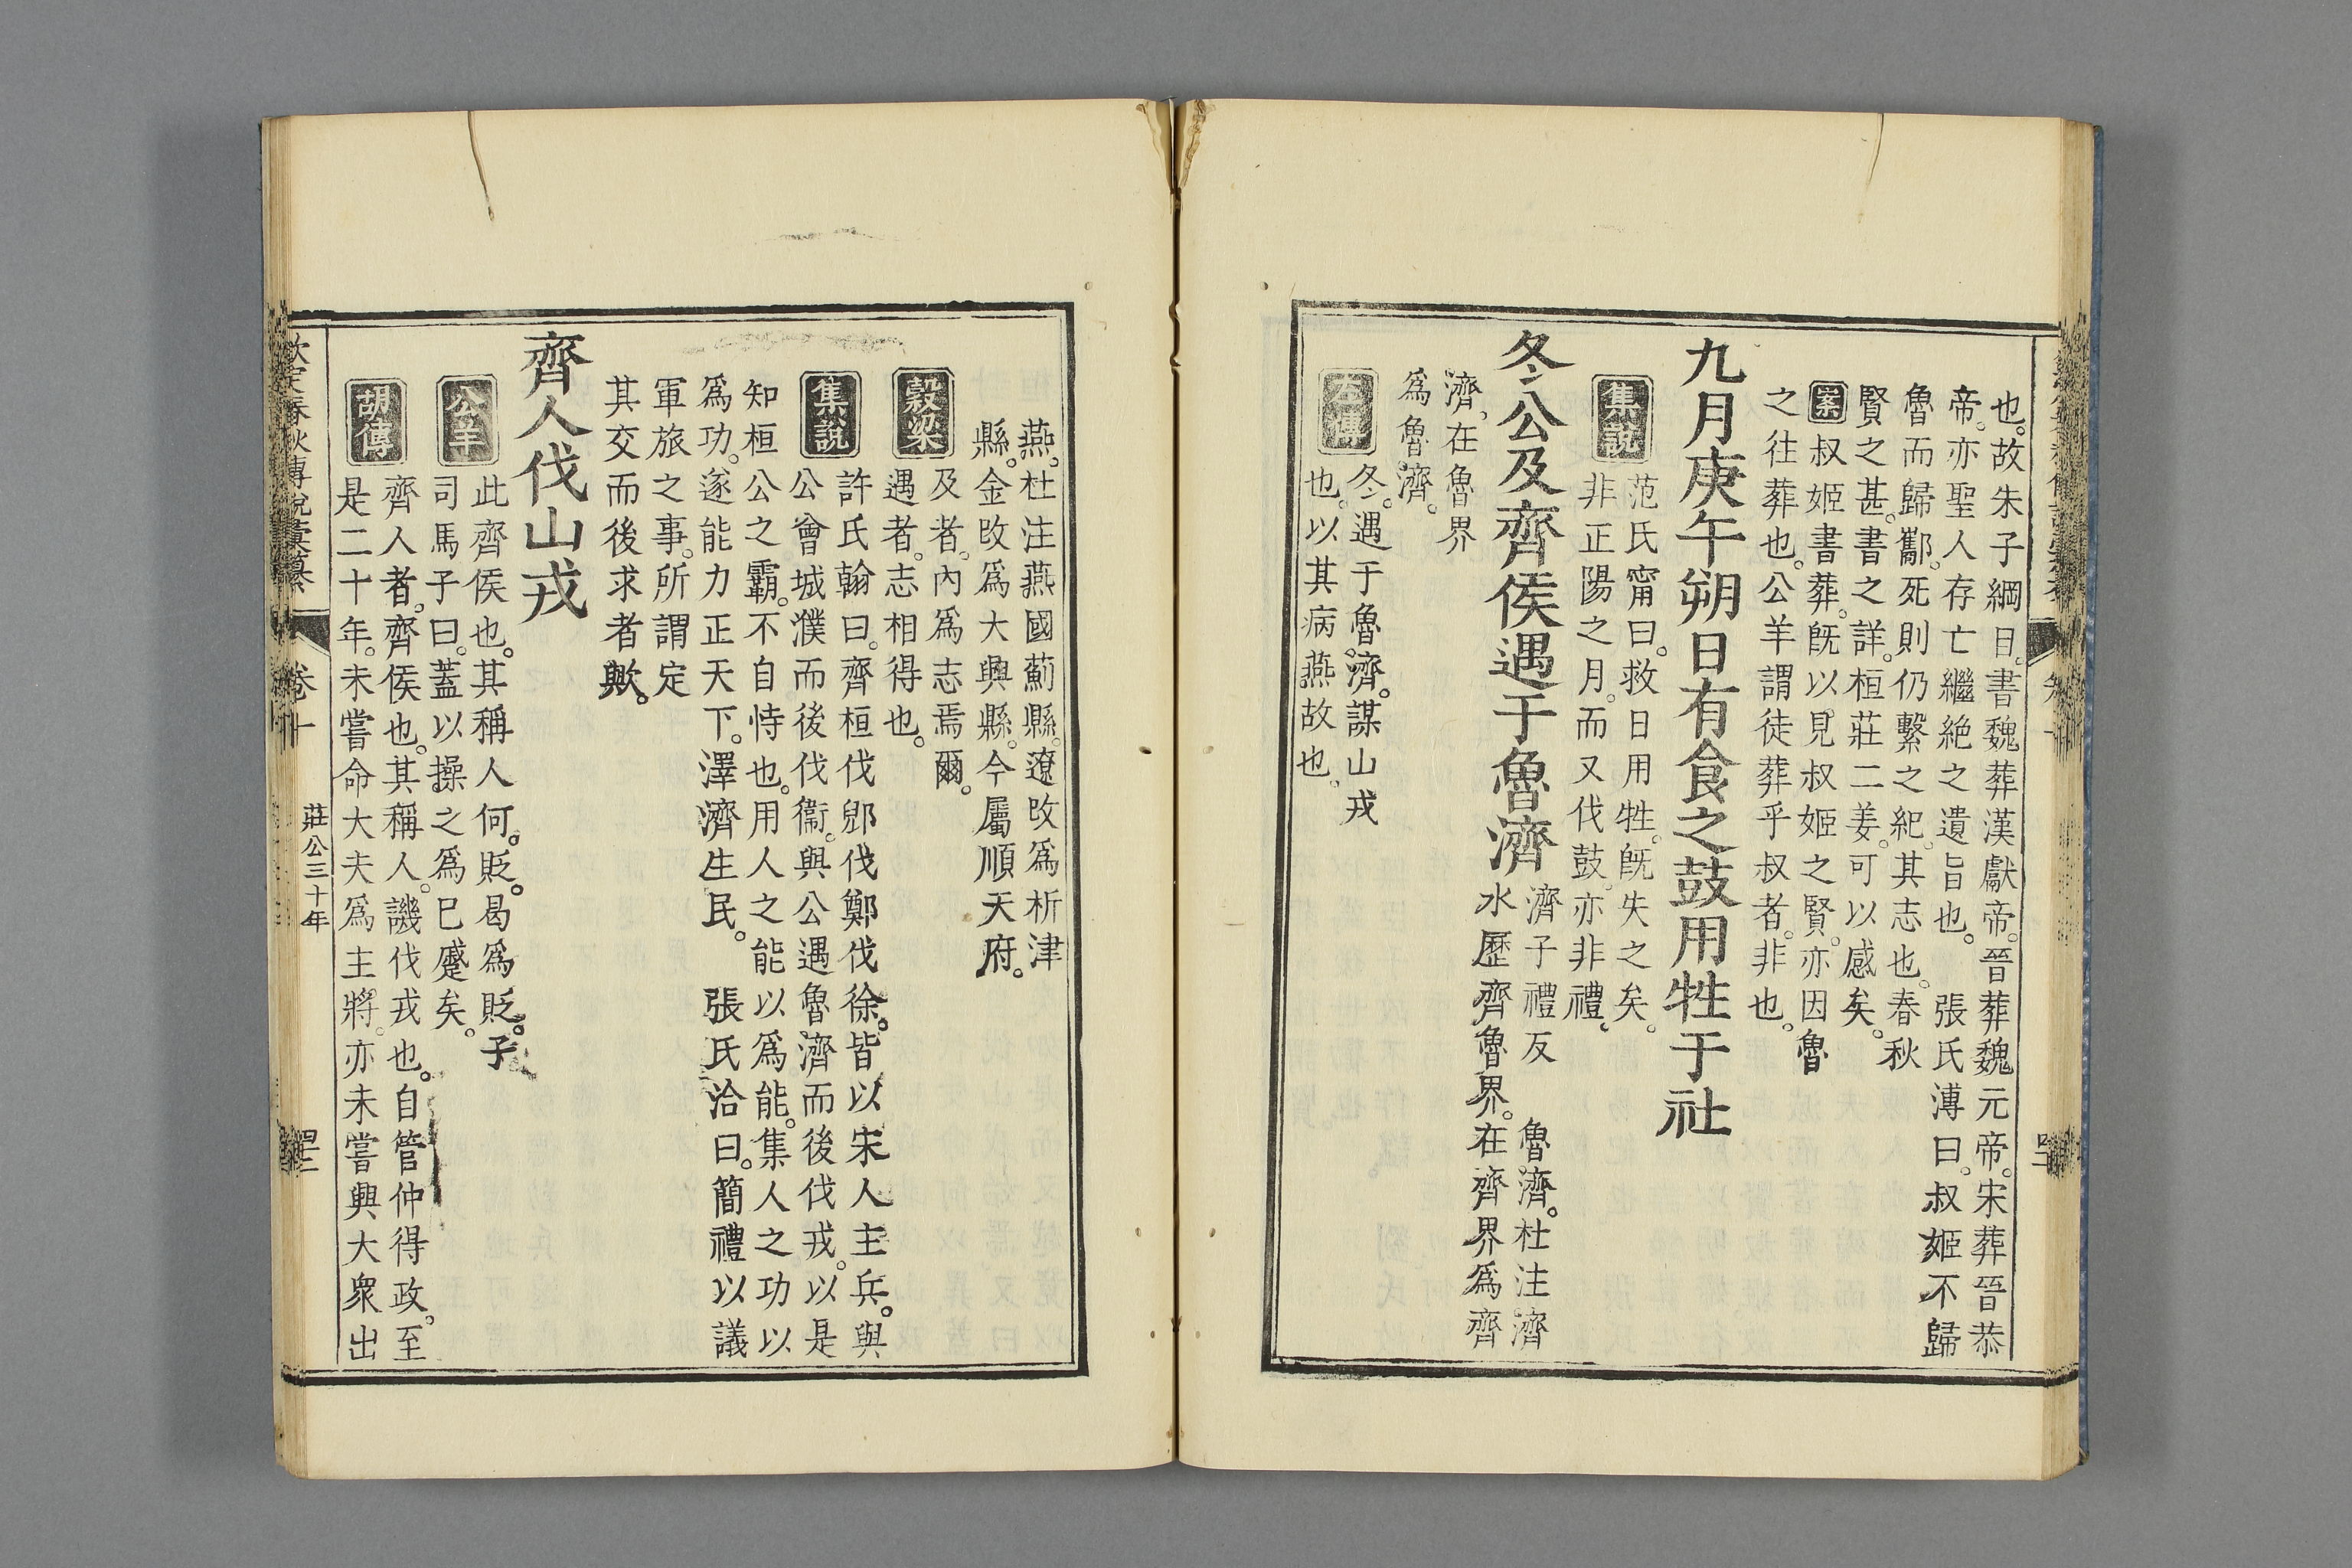 也。故朱子綱目。書魏葬漢獻帝。晉葬魏元帝。宋葬晉恭
帝。亦聖人存亡繼絶之遺旨也。 張氏溥曰。叔姬不歸
魯而歸酅。死則仍繫之紀。其志也。春秋
賢之甚。書之詳。桓莊二姜。可以感矣。
案 叔姬書葬。旣以見叔姬之賢。亦因魯
之往葬也。公羊謂徒葬乎叔者。非也。
九月庚午朔日有食之鼓用牲于社
集說 范氏甯曰。救日用牲。旣失之矣。
非正陽之月。而又伐鼓。亦非禮。
冬公及齊侯遇于魯濟 濟子禮反 魯濟。杜注。濟
水歷齊魯界。在齊界爲齊
濟。在魯界
爲魯濟。
左傳 冬。遇于魯濟。謀山戎
也。以其病燕故也。
燕。杜注燕國薊縣。遼改爲析津
縣。金改爲大興縣。今屬順天府。
穀梁 及者。內爲志焉爾。
遇者。志相得也。
集說 許氏翰曰。齊桓伐郳伐鄭伐徐。皆以宋人主兵。與
公會城濮而後伐衞。與公遇魯濟而後伐戎。以是
知桓公之霸。不自恃也。用人之能以爲能。集人之功以
爲功。遂能力正天下。澤濟生民。 張氏洽曰。簡禮以議
軍旅之事。所謂定
其交而後求者歟。
齊人伐山戎
公羊 此齊侯也。其稱人何。貶。曷爲貶。子
司馬子曰。蓋以操之爲已蹙矣。
胡傳 齊人者。齊侯也。其稱人。譏伐戎也。自管仲得政。至
是二十年。未嘗命大夫爲主將。亦未嘗興大衆出
欽定春秋傳說彙纂 卷十 莊公三十年